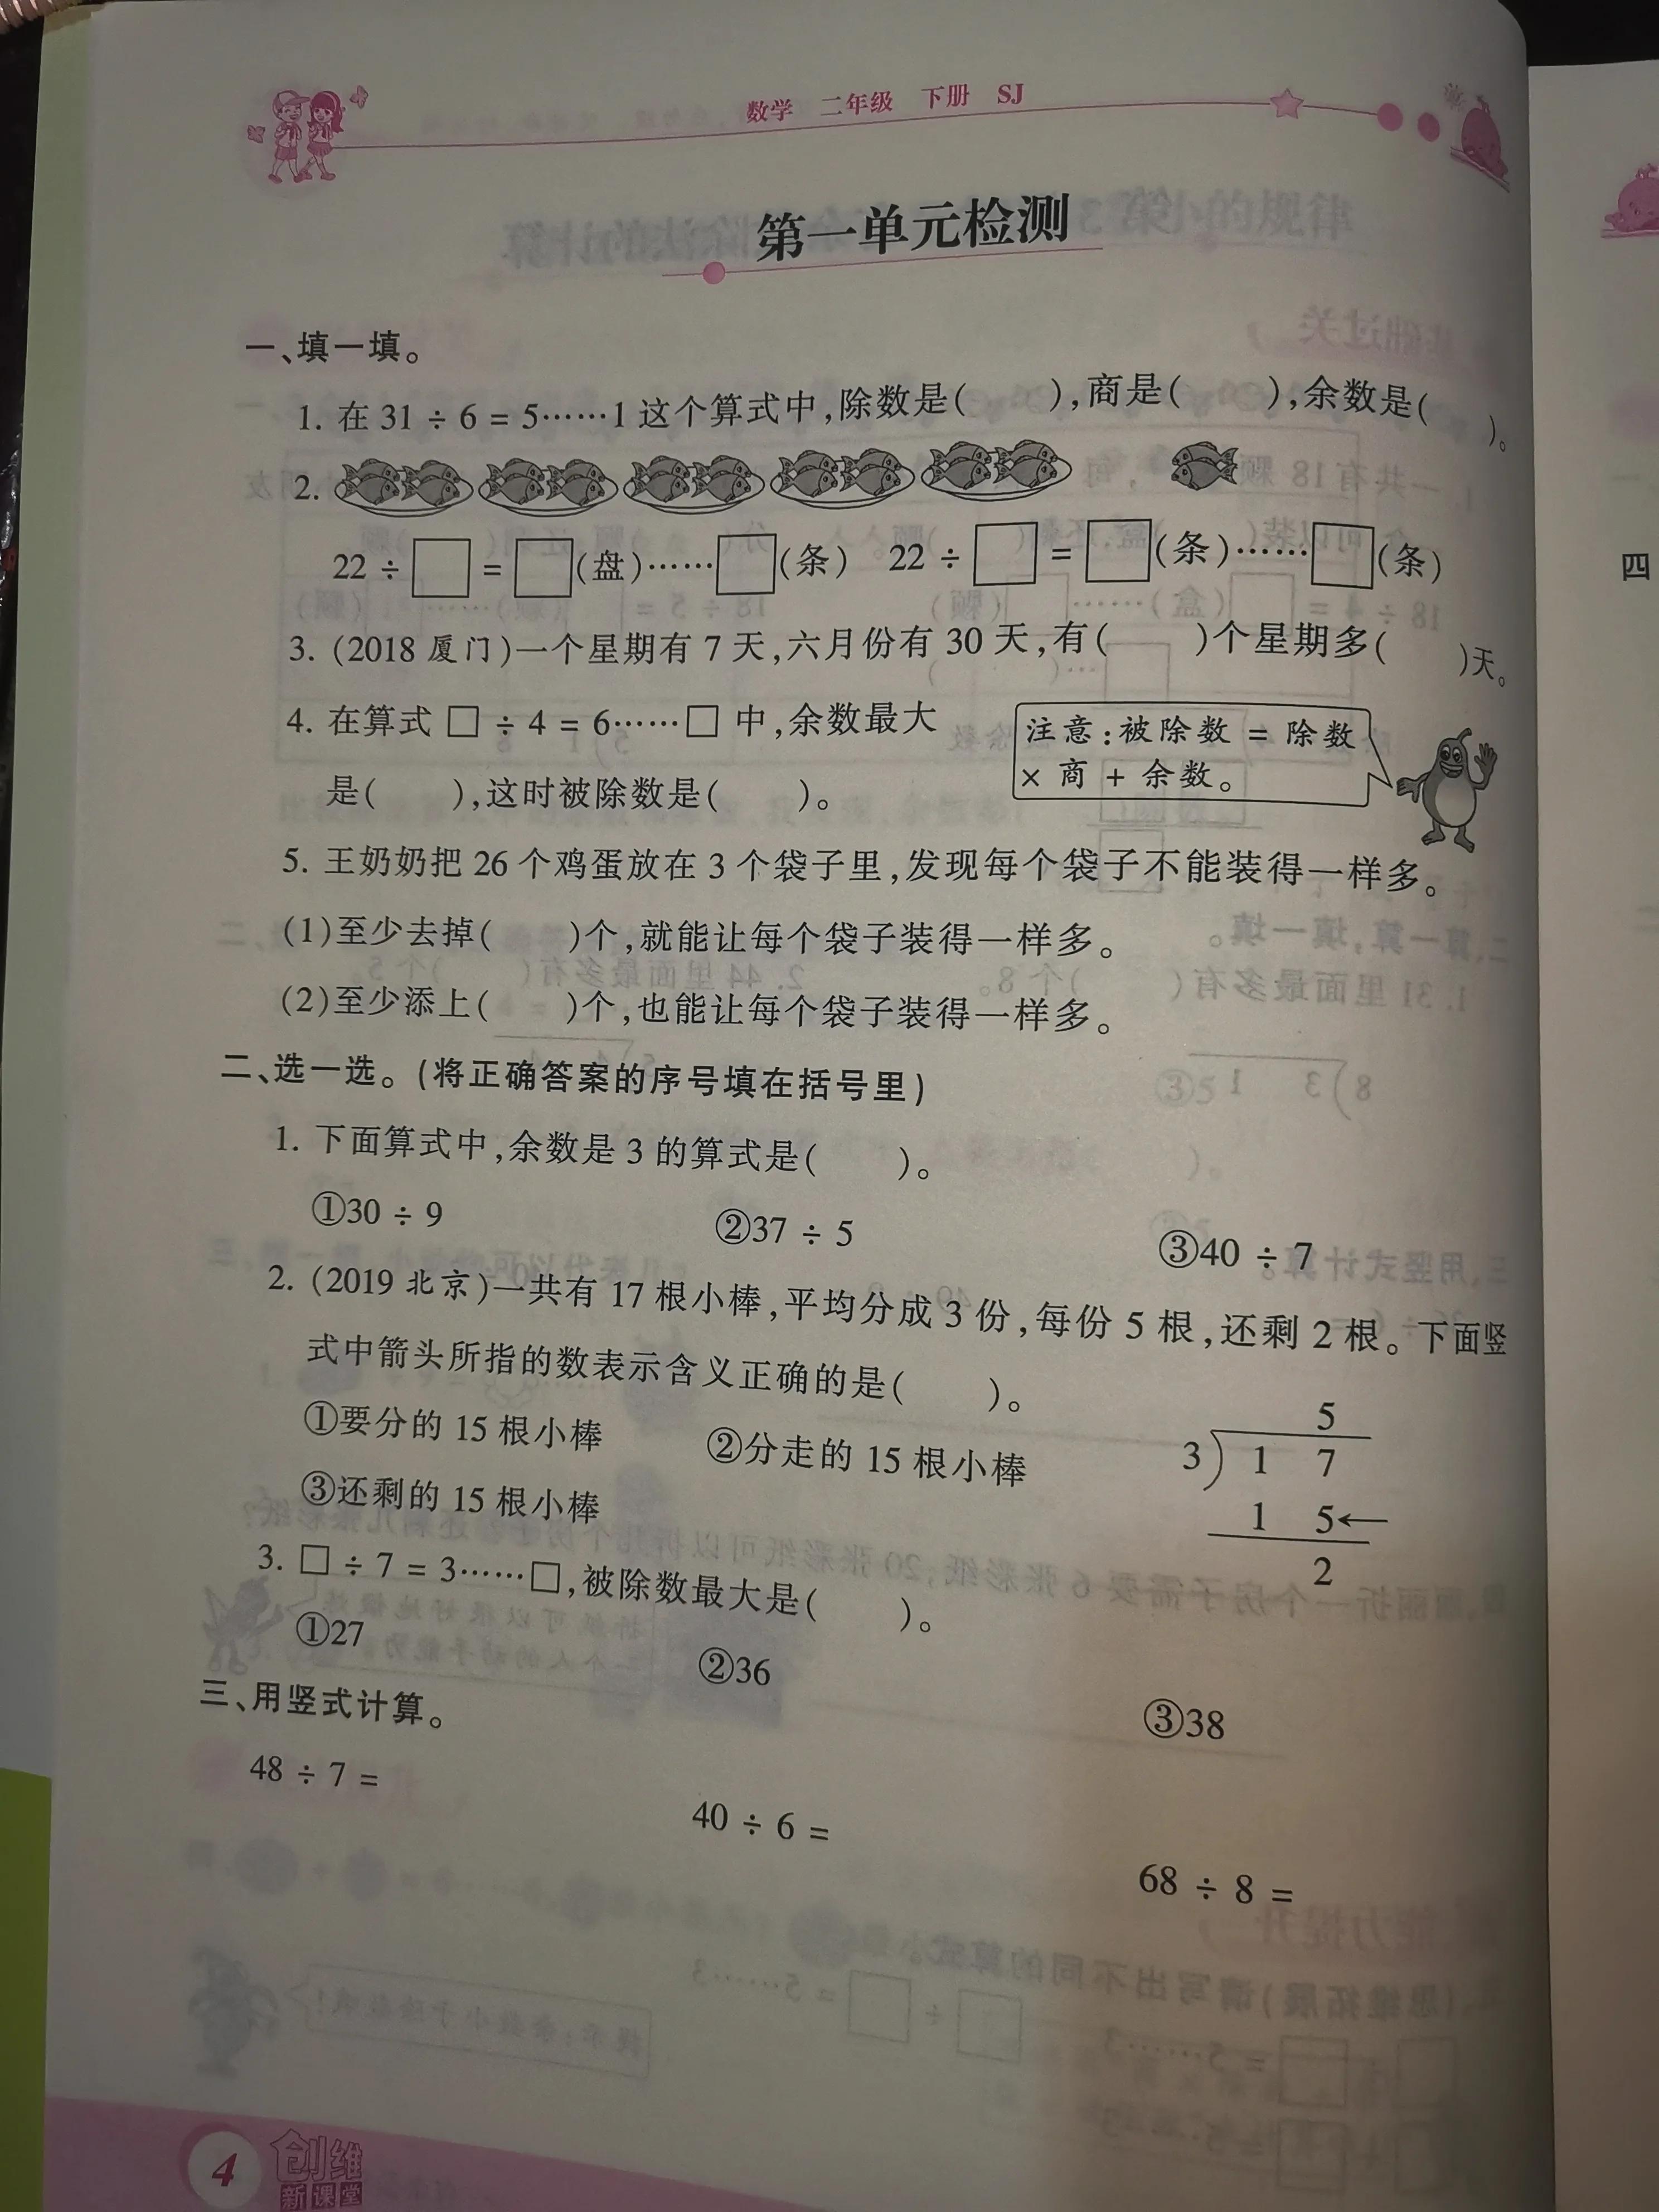 数学 二年级 下册 SJ
第一单元检测
一、填一填。
1. 在 31 ÷ 6 = 5……1 这个算式中,除数是( ),商是( ),余数是( )。
2.
22 ÷ □ = □(盘)……□(条) 22 ÷ □ = □(条)……□(条)
3. (2018 厦门)一个星期有 7 天,六月份有 30 天,有( )个星期多( )天。
4. 在算式 □ ÷ 4 = 6……□ 中,余数最大
是( ),这时被除数是( )。
注意:被除数 = 除数
× 商 + 余数。
5. 王奶奶把 26 个鸡蛋放在 3 个袋子里,发现每个袋子不能装得一样多。
(1)至少去掉( )个,就能让每个袋子装得一样多。
(2)至少添上( )个,也能让每个袋子装得一样多。
二、选一选。(将正确答案的序号填在括号里)
1. 下面算式中,余数是 3 的算式是( )。
①30 ÷ 9 ②37 ÷ 5 ③40 ÷ 7
2. (2019 北京)一共有 17 根小棒,平均分成 3 份,每份 5 根,还剩 2 根。下面竖
式中箭头所指的数表示含义正确的是( )。
①要分的 15 根小棒 ②分走的 15 根小棒
③还剩的 15 根小棒
5
3 1 7
1 5←
2
3. □ ÷ 7 = 3……□,被除数最大是( )。
①27 ②36 ③38
三、用竖式计算。
48 ÷ 7 = 40 ÷ 6 = 68 ÷ 8 =
4 创维
新课堂
四